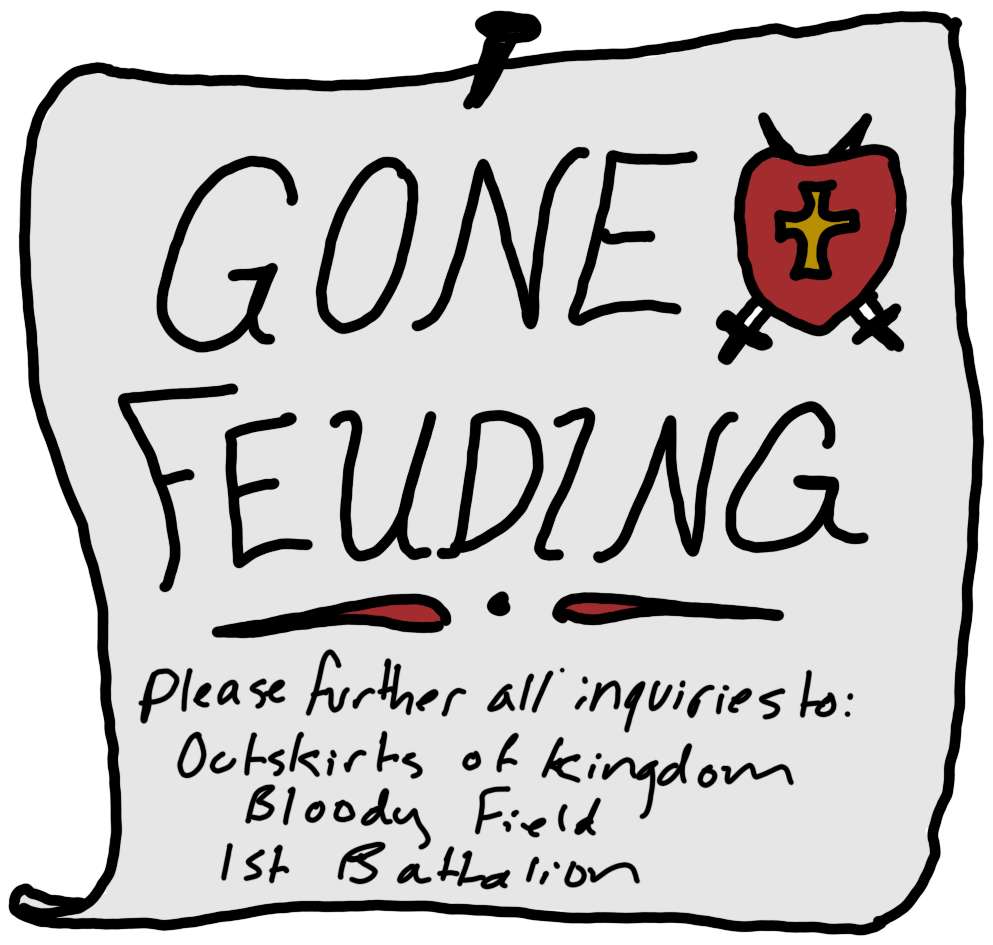 GONE
FEUDING
Please further all inquiries to:
Outskirts of kingdom
Bloody Field
1st Battalion